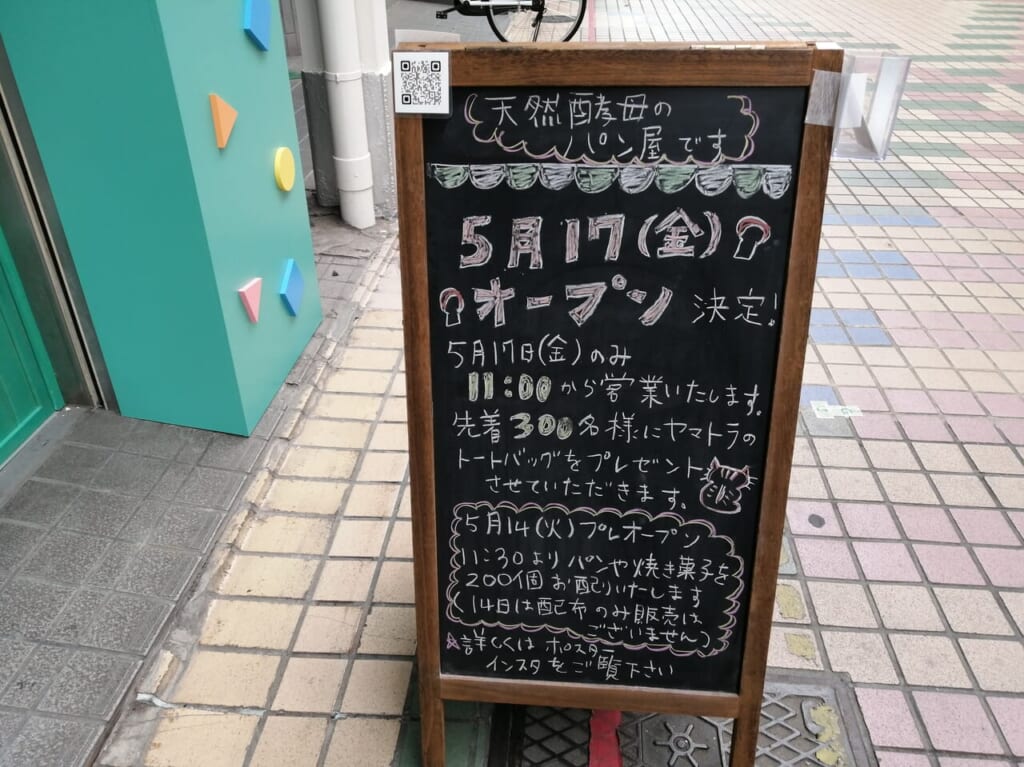 天然酵母の
パン屋です
5月17(金)
オープン 決定!
5月17日(金)のみ
11:00から営業いたします。
先着300名様にヤマトラの
トートバッグをプレゼント
させていただきます。
5月14(火)プレオープン
11:30よりパンや焼き菓子を
200個お配りいたします
(14日は配布のみ販売は
ございません)
☆詳しくは ポスター
インスタをご覧下さい